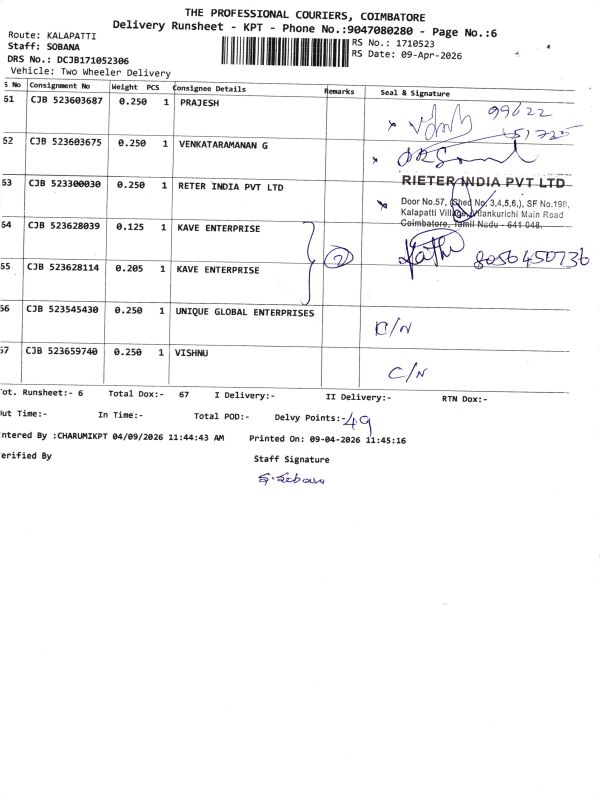 THE PROFESSIONAL COURIERS, COIMBATORE
Delivery Runsheet - KPT - Phone No.:9047080280 - Page No.:6
Route: KALAPATTI
RS No.: 1710523
Staff: SOBANA
RS Date: 09-Apr-2026
DRS No.: DCJB171052306
Vehicle: Two Wheeler Delivery
S No Consignment No Weight PCS Consignee Details Remarks Seal & Signature
61 CJB 523603687 0.250 1 PRAJESH
99622
51725
62 CJB 523603675 0.250 1 VENKATARAMANAN G
63 CJB 523300030 0.250 1 RETER INDIA PVT LTD
RIETER INDIA PVT LTD
Door No.57, (Shed No. 3,4,5,6,), SF No.198,
Kalapatti Village, Vilankurichi Main Road
Coimbatore, Tamil Nadu - 641 048.
64 CJB 523628039 0.125 1 KAVE ENTERPRISE
2
8056450736
65 CJB 523628114 0.205 1 KAVE ENTERPRISE
66 CJB 523545430 0.250 1 UNIQUE GLOBAL ENTERPRISES
C/N
67 CJB 523659740 0.250 1 VISHNU
C/N
Tot. Runsheet:- 6 Total Dox:- 67 I Delivery:- II Delivery:- RTN Dox:-
Out Time:- In Time:- Total POD:- Delvy Points:- 49
Entered By :CHARUMIKPT 04/09/2026 11:44:43 AM Printed On: 09-04-2026 11:45:16
Verified By
Staff Signature